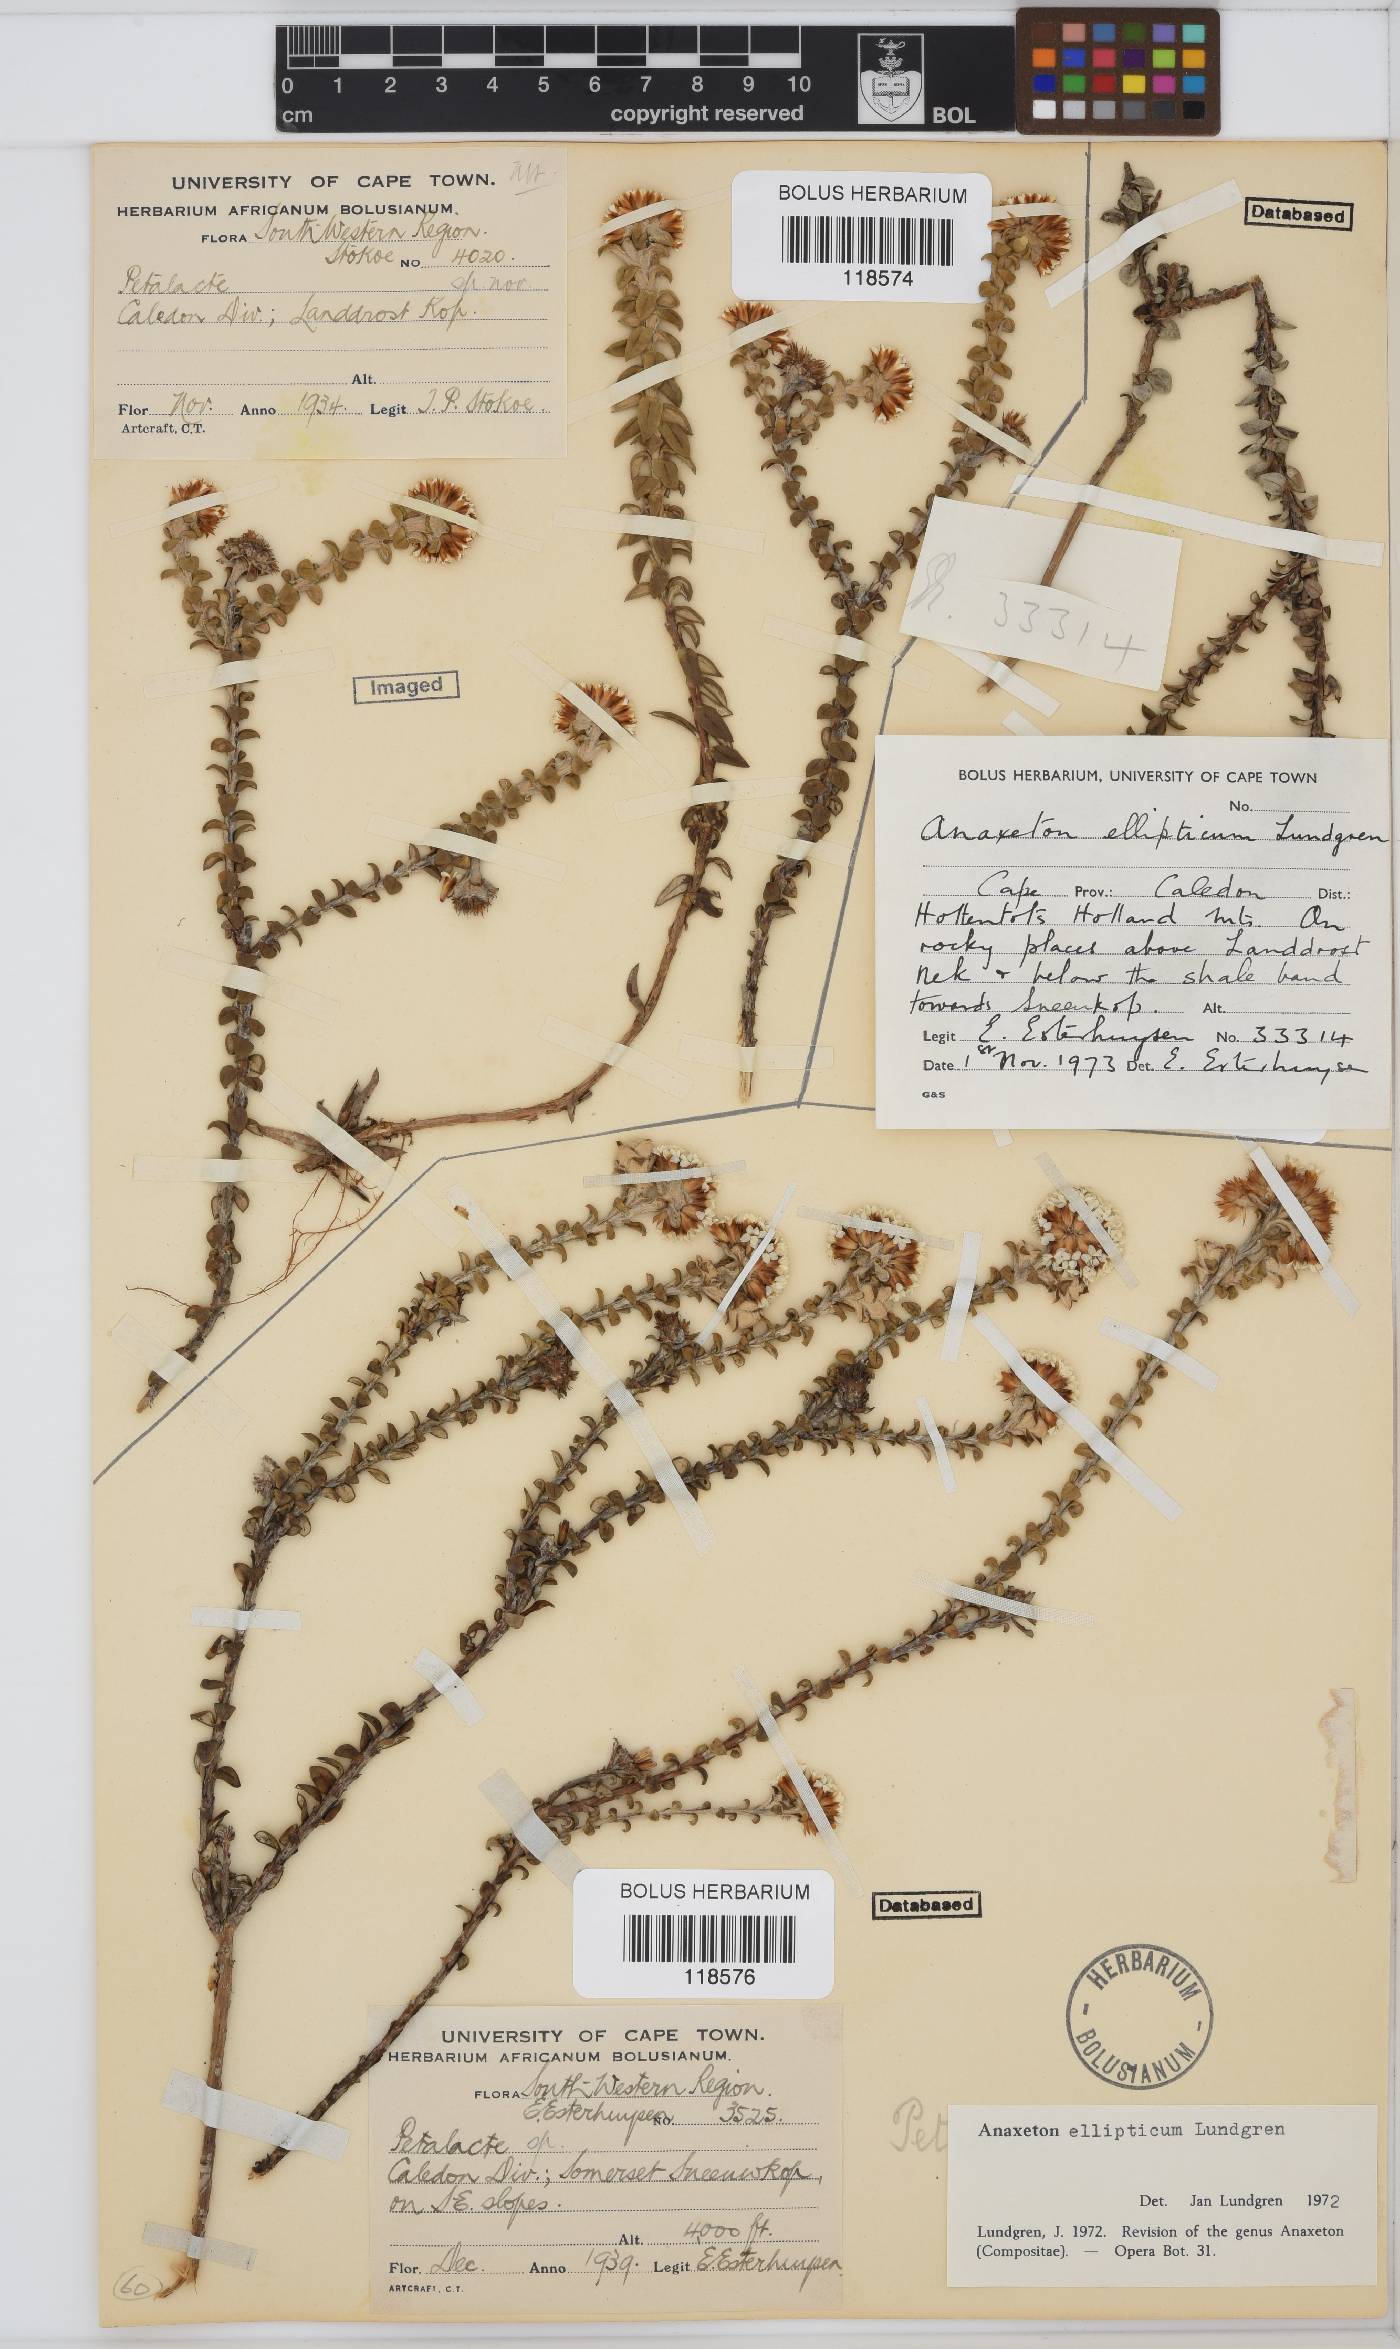 0 1 2 3 4 5 6 7 8 9 10
cm
copyright reserved
BOL
UNIVERSITY OF CAPE TOWN.
HERBARIUM AFRICANUM BOLUSIANUM.
FLORA South-Western Region.
Stokoe No 4020.
Petalacte sp. nov.
Caledon Div.; Landdrost Kop.
Alt.
Flor Nov. Anno 1934. Legit T. P. Stokoe.
Artcraft, C.T.
BOLUS HERBARIUM
118574
Databased
Imaged
33314
BOLUS HERBARIUM, UNIVERSITY OF CAPE TOWN
No.
Anaxeton ellipticum Lundgren
Cape Prov.: Caledon Dist.:
Hottentots Holland Mts. On
rocky places above Landdrost
Nek & below the shale band
towards Sneeukop. Alt.
Legit E. Esterhuysen No. 33314
Date 1st Nov. 1973 Det. E. Esterhuysen
G&S
BOLUS HERBARIUM
118576
Databased
HERBARIUM
BOLUSIANUM
UNIVERSITY OF CAPE TOWN.
HERBARIUM AFRICANUM BOLUSIANUM.
FLORA South-Western Region.
E. Esterhuysen No. 3525.
Petalacte sp.
Caledon Div.; Somerset Sneeuwkop,
on S.E. slopes.
Alt. 4,000 ft.
Flor. Dec. Anno 1939. Legit E. Esterhuysen.
ARTCRAFT, C.T.
60
Pet
Anaxeton ellipticum Lundgren
Det. Jan Lundgren 1972
Lundgren, J. 1972. Revision of the genus Anaxeton
(Compositae). — Opera Bot. 31.